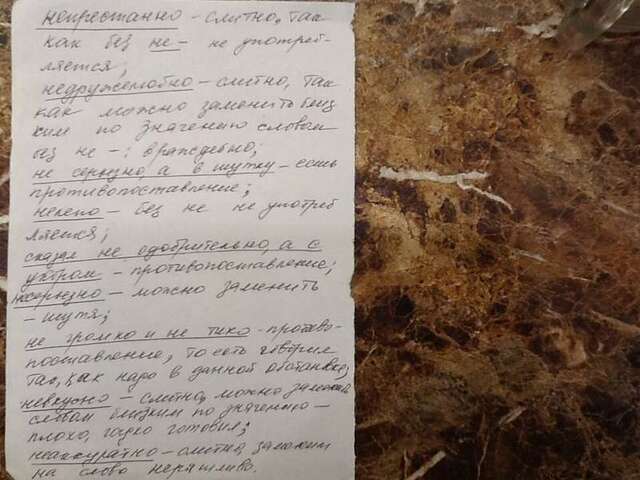 непрестанно - слитно, так
как без не - не употреб-
ляется;
недружелюбно - слитно, так
как можно заменить близ
ким по значению словом
без не - : враждебно;
не серьезно, а в шутку - есть
противопоставление;
нелепо - без не не употреб
ляется;
сказал не одобрительно, а с
укором - противопоставление;
несерьезно - можно заменить
- шутя;
не громко и не тихо - противо-
поставление, то есть говорил
так, как надо в данной обстановке;
невкусно - слитно, можно заменить
словом близким по значению -
плохо, готовил;
неаккуратно - слитно, заменим
на слово неряшливо.